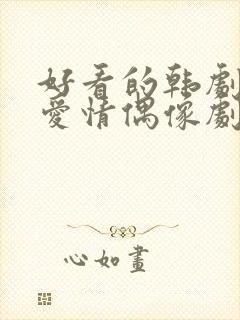 好看的韩劇
愛情偶像劇
心如畫